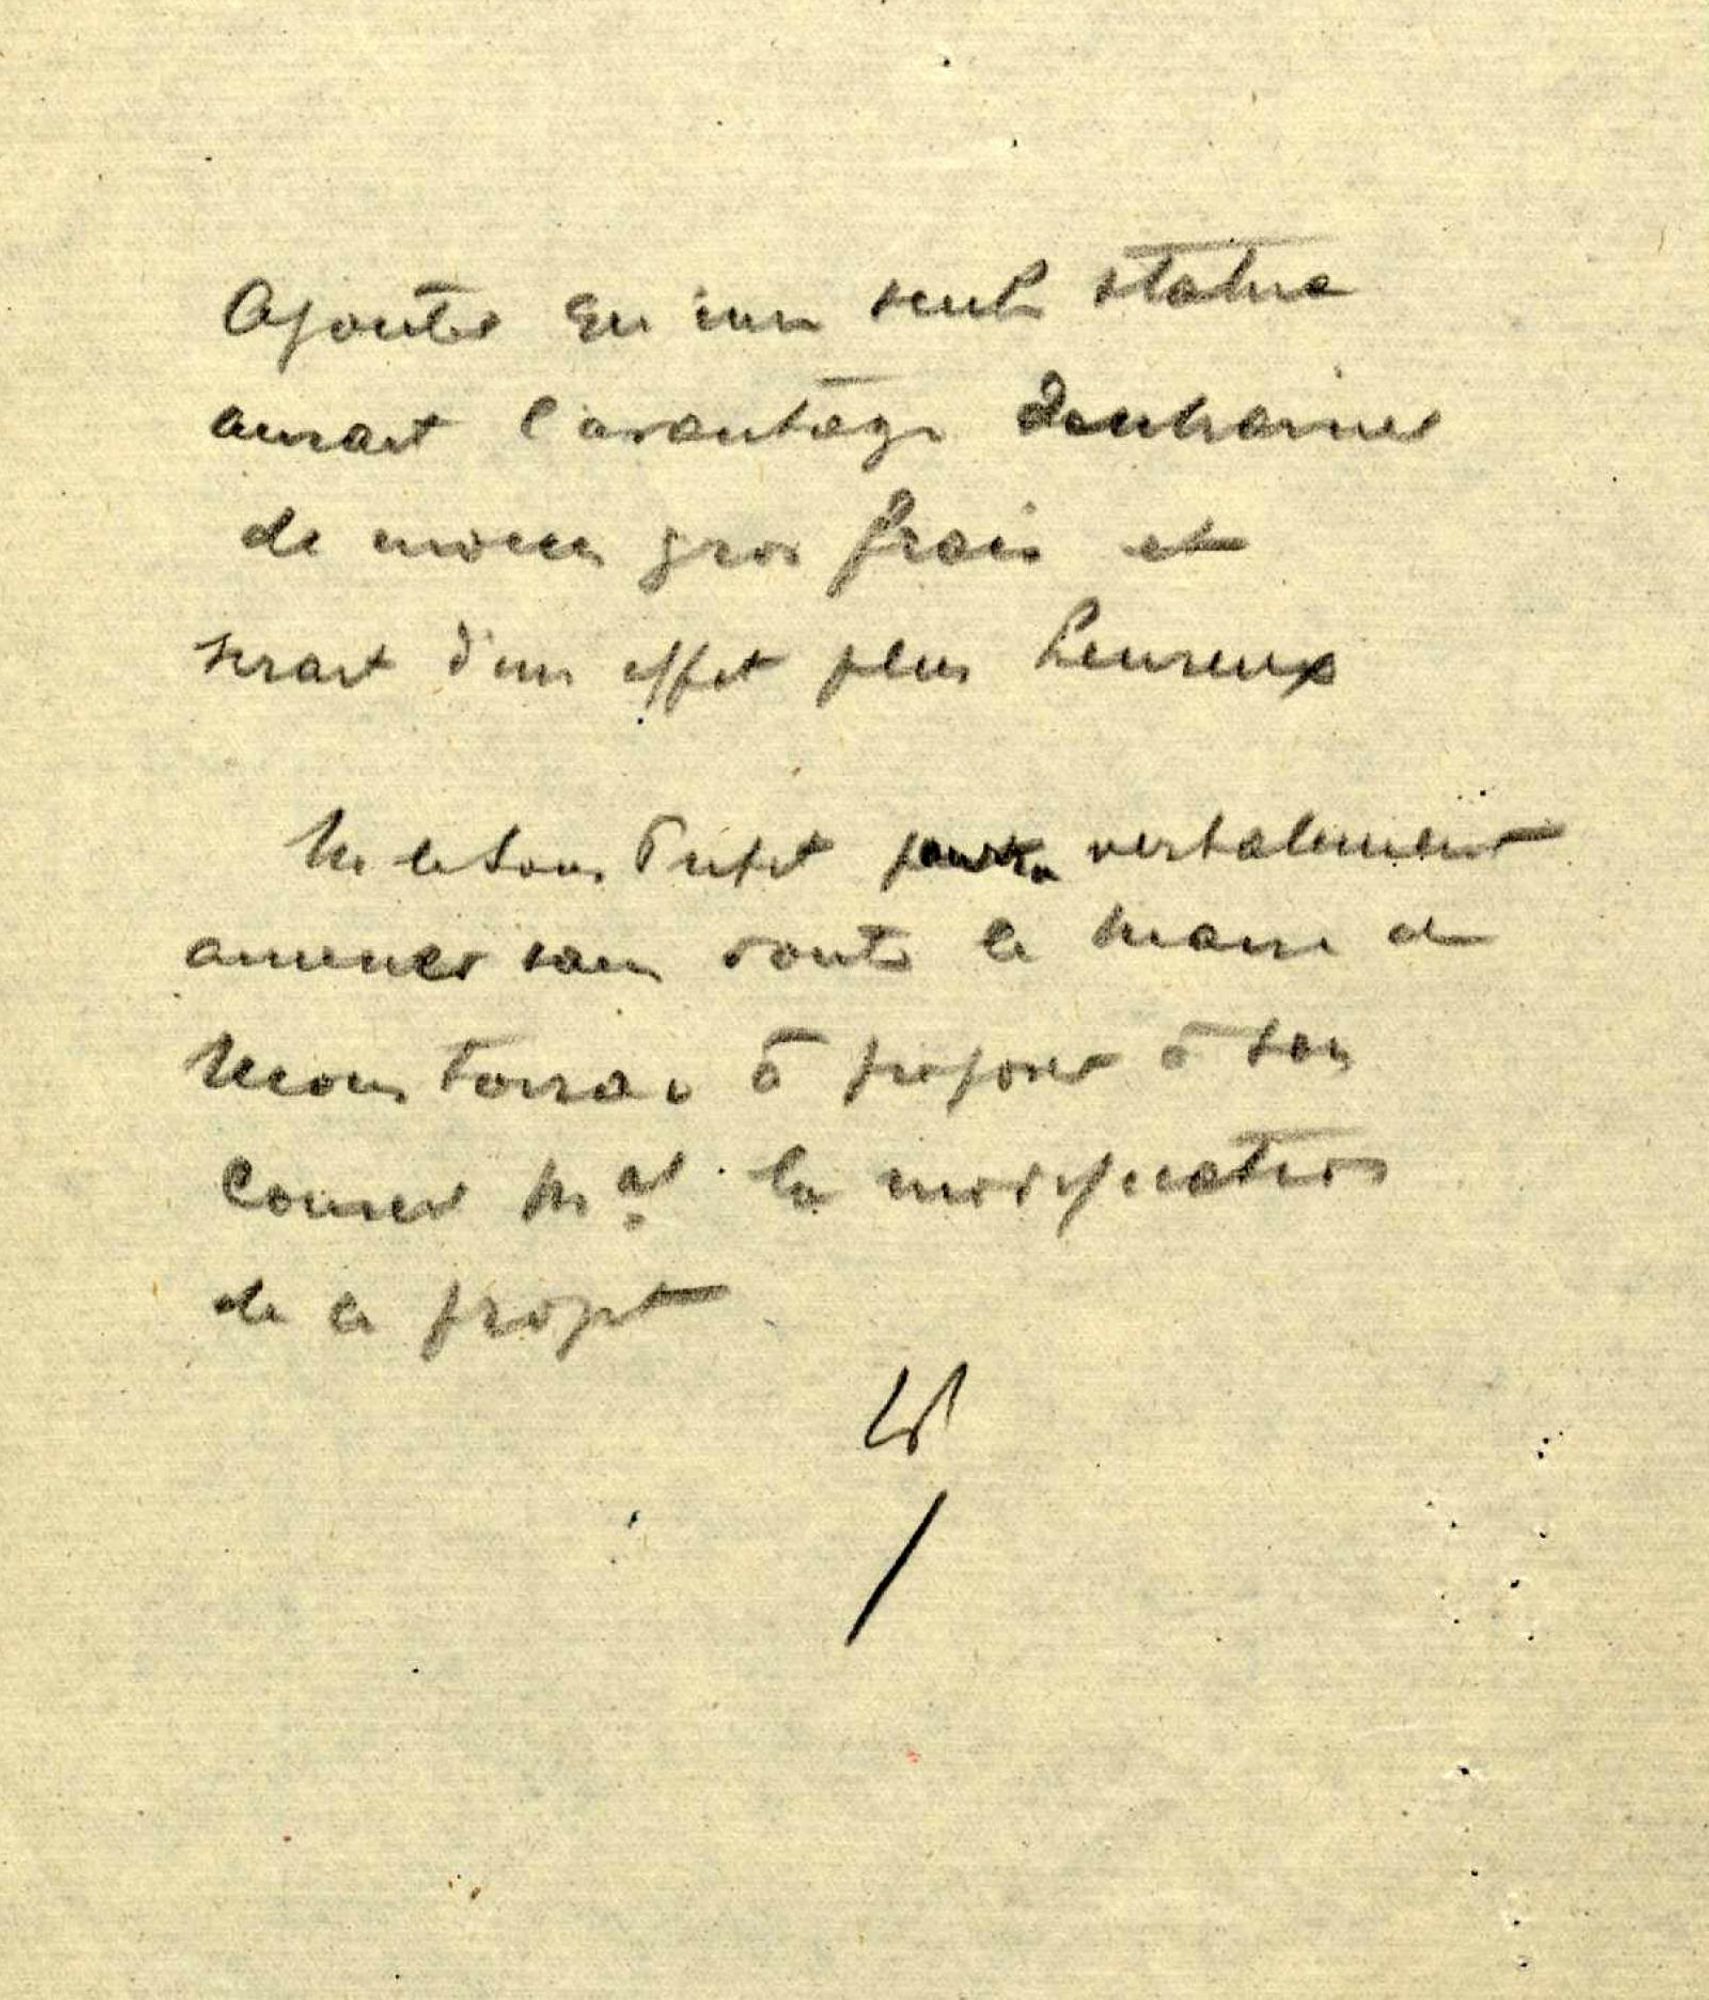 Ajouter qu'une seule statue
aurait l'avantage d'entrainer
de moins gros frais et
serait d'un effet plus heureux
M le Sous Préfet pourra verbalement
amener sans doute le maire de
à proposer à son
Conseil Mal la modification
de ce projet